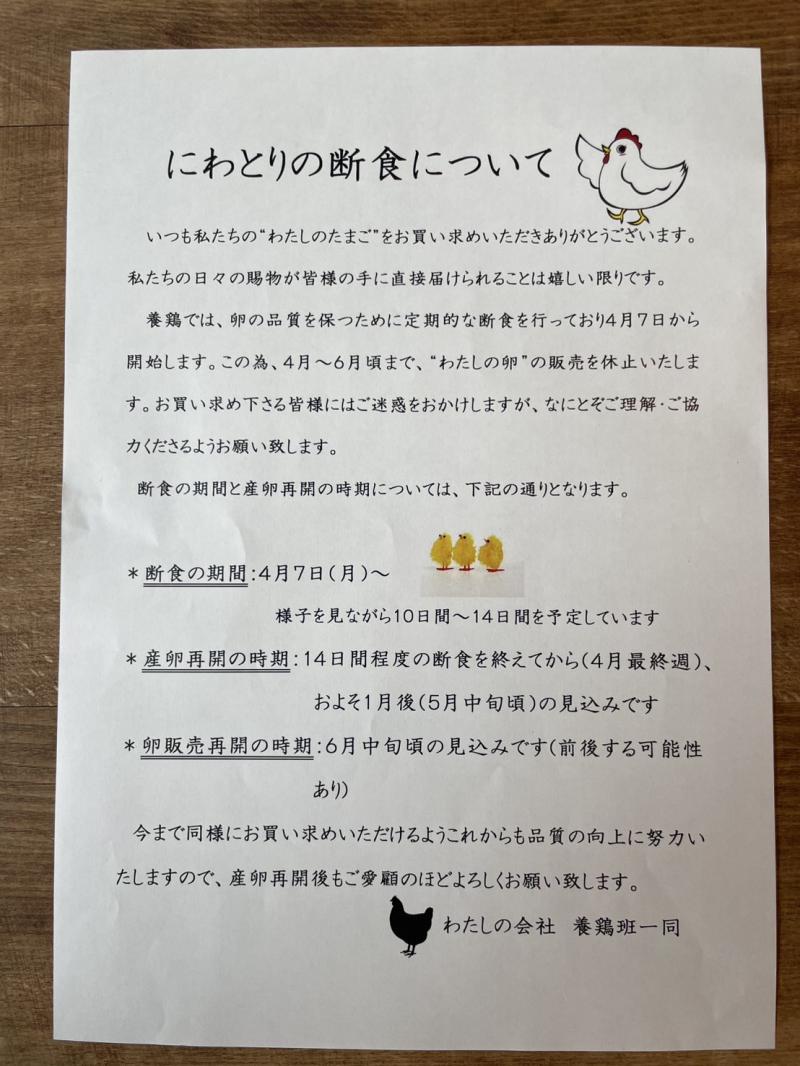 にわとりの断食について
いつも私たちの“わたしのたまご”をお買い求めいただきありがとうございます。
私たちの日々の賜物が皆様の手に直接届けられることは嬉しい限りです。
養鶏では、卵の品質を保つために定期的な断食を行っており4月7日から
開始します。この為、4月～6月頃まで、“わたしの卵”の販売を休止いたしま
す。お買い求め下さる皆様にはご迷惑をおかけしますが、なにとぞご理解・ご協
力くださるようお願い致します。
断食の期間と産卵再開の時期については、下記の通りとなります。
＊断食の期間:4月7日(月)～
様子を見ながら10日間～14日間を予定しています
＊産卵再開の時期:14日間程度の断食を終えてから(4月最終週)、
およそ1月後(5月中旬頃)の見込みです
＊卵販売再開の時期:6月中旬頃の見込みです(前後する可能性
あり)
今まで同様にお買い求めいただけるようこれからも品質の向上に努力い
たしますので、産卵再開後もご愛顧のほどよろしくお願い致します。
わたしの会社　養鶏班一同